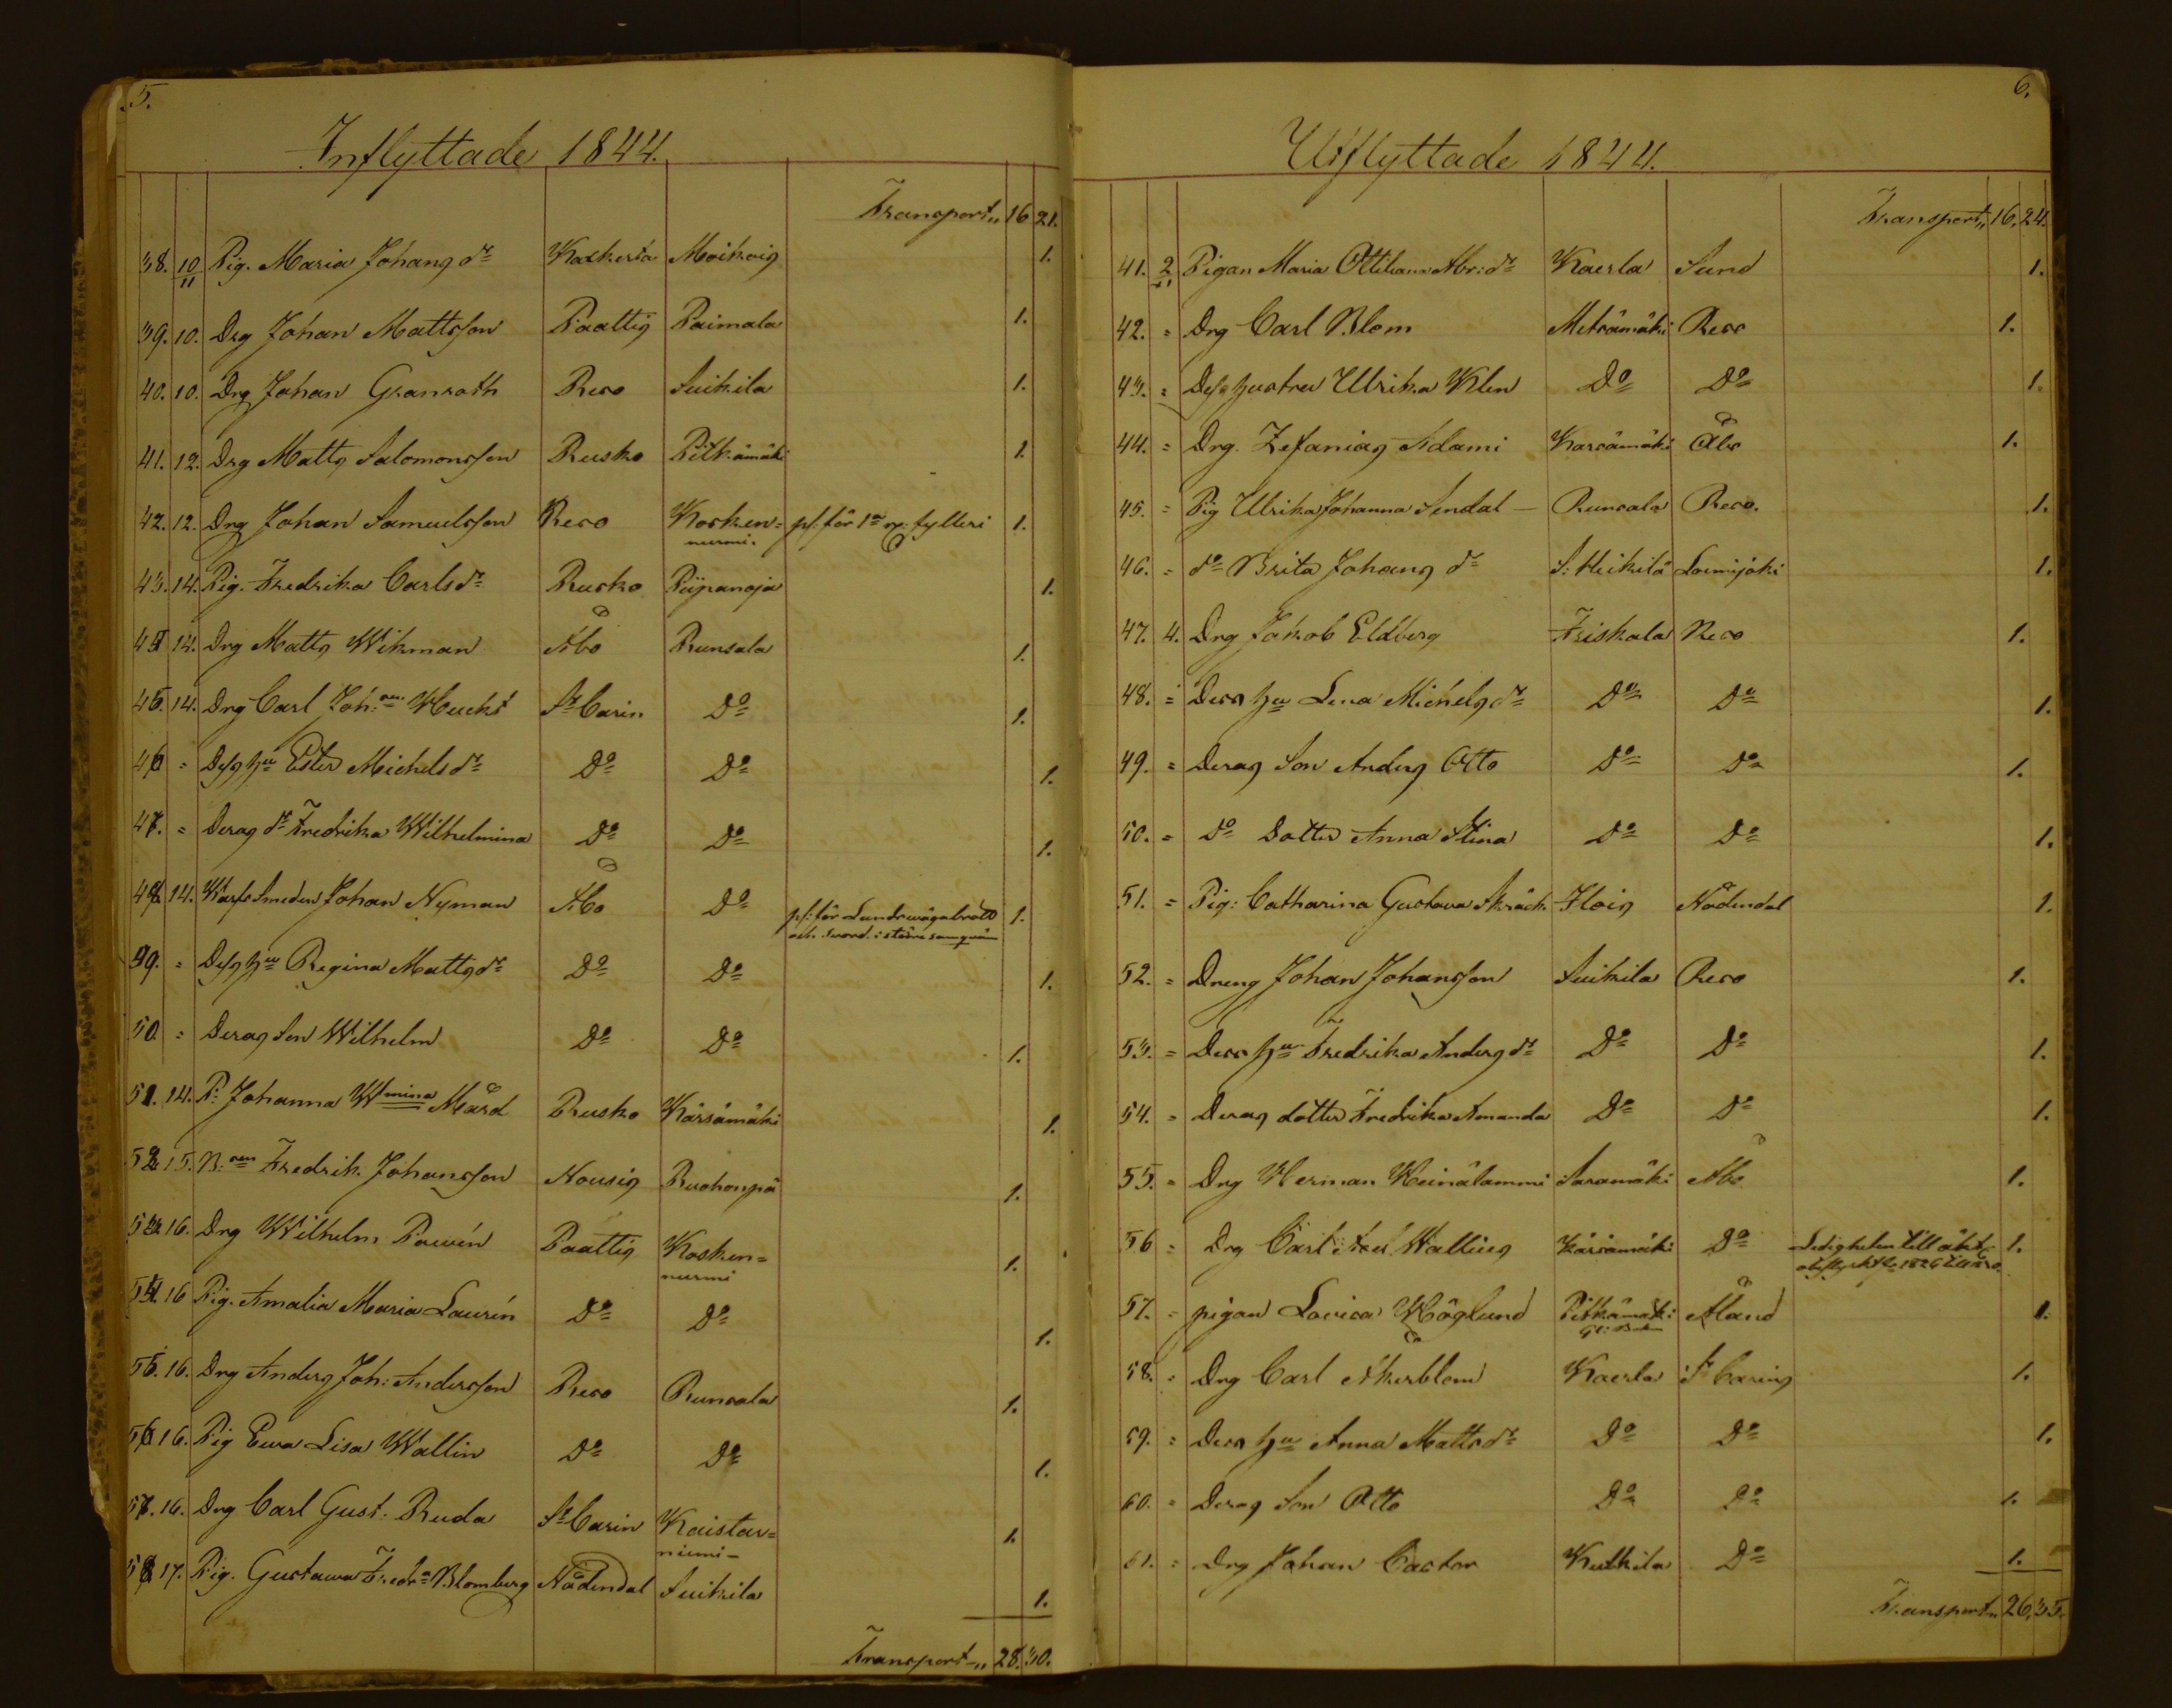 5.
Inflyttade 1844.
Transport„ 16 21.
38. 10/11 Pig. Maria Johans dr Kaskerta Moikois 1.
39. 10. Drg Johan Mattsson Paattis Paimala 1.
40. 10. Drg Johan Granroth Reso Suikila 1.
41. 12. Drg Matts Salomonsson Rusko Pitkämäki 1.
42. 12. Drg Johan Samuelsson Reso Kosken= pl: för 1a fylleri 1.
nurmi.
43. 14. Pig. Fredrika Carlsdr Rusko Piipanoja 1.
44 14. Drg Matts Wikman Åbo Runsala 1.
45. 14. Drg Carl Joh: Huckt St Carin Do 1.
46 = Dess hu Ester Michelsdr Do Do 1.
47. = Deras dr Fredrika Wilhelmina Do Do 1.
48 14. Smeden Johan Nyman Åbo Do pl: för 1.
49. = Dess hu Regina Mattsdr Do Do 1.
50 = Deras Son Wilhelm Do Do 1.
51. 14. P: Johanna Wmina Mård Rusko Kärsämäki 1.
52 15. Fredrik Johansson Nousis Ruohonpä 1.
53 16. Drg Wilhelm Pawén Paattis Kosken= 1.
nurmi
54. 16 Pig. Amalia Maria Laurén Do Do 1.
55. 16. Drg Anders Joh: Andersson Reso Runsala 1.
56 16. Pig Ewa Lisa Wallin Do Do 1.
57. 16. Drg Carl Gust. Ruda St Carin Kaistar= 1.
niemi-
58 17. Pig. Gustawa Fredr: Blomberg Nådendal Suikila 1.
Transport„ 28. 30.
6.
Utflyttade 1844.
Transport„ 16. 24.
41. 2/11 Pigan Maria Ottiliana Abr: dr Kaerla Sund 1.
42. = Drg Carl Blom Metsämäki Reso 1.
43. = Dess hustru Ulrika Klen Do Do 1.
44. = Drg. Zefanias Adami Karsämäki Åbo 1.
45. = Pig Ulrika Johanna Sendal — Runsala Reso. 1.
46. = do Brita Johans dr S: Heikilä Loimijoki 1.
47. 4. Drg Jakob Eldberg Friskala Reso 1.
48. = Dess hu Lena Michels dr Do Do 1.
49. = Deras Son Anders Otto Do Do 1.
50. = Do Dotter Anna Stina Do Do 1.
51. = Pig: Catharina Gustava Skräck Ilois Nådendal 1.
52. = Dreng Johan Johansson Suikila Reso 1.
53. = Dess hu Fredrika Anders dr Do Do 1.
54. = Deras dotter Fredrika Amanda Do Do 1.
55. = Drg Herman Heinälammi Saramäki Åbo 1.
56 = Drg Carl Axel Wallius Kärsämäki Do Ledigheten till äkt. 1.
57. = pigan Lovisa Höglund Pitkämäki Åland 1.
58. = Drg Carl Åkerblom Kaerla St Carins 1.
59. = Dess hu Anna Mattsdr Do Do 1.
60. = Deras Son Otto Do Do 1.
61. = Drg Johan Castor Kulkila Do 1.
Transport„ 26. 35.